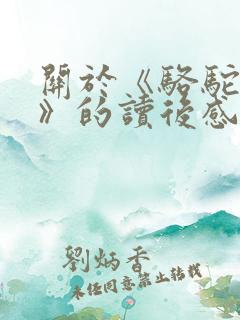 關於《駱駝
》的讀後感
劉炳香
未經同意禁止轉載